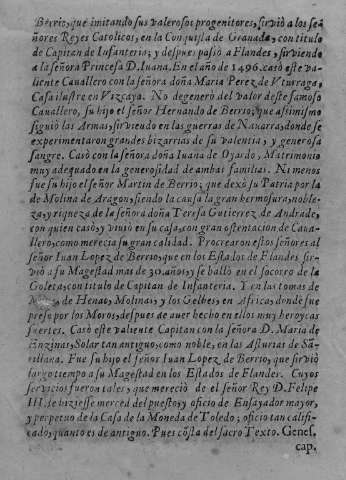 Berrio, que imitando sus valerosos progenitores, sirviò a los se-
ñores Reyes Catolicos, en la Conquista de Granada, con titulo
de Capitan de Infanteria; y despues passò a Flandes, sirviendo
a la señora Princesa D. Iuana. En el año de 1496. casò este va-
liente Cauallero con la señora doña Maria Perez de Vturraga,
Casa ilustre en Vizcaya. No degenerò del valor deste famoso
Cauallero, su hijo el señor Hernando de Berrio; que assimismo
siguiò las Armas, sirviendo en las guerras de Nauarra, donde se
experimentaron grandes bizarrias de su valentia, y generosa
sangre. Casò con la señora doña Iuana de Ojardo, Matrimonio
muy adequado en la generosidad de ambas familias. Ni menos
fue su hijo el señor Martin de Berrio; que dexò su Patria por la
de Molina de Aragon, siendo la causa la gran hermosura, noble-
za, y riqueza de la señora doña Teresa Gutierrez de Andrade,
con quien casò, y viuiò en su casa, con gran ostentacion de Caua-
llero, como merecia su gran calidad. Procrearon estos señores al
señor Iuan Lopez de Berrio, que en los Estados de Flandes sir-
viò a su Magestad mas de 30. años, y se hallò en el socorro de la
Goleta, con titulo de Capitan de Infanteria. Y en las tomas de
de Henao, Molinais, y los Gelbes, en Africa, donde fue
preso por los Moros, despues de auer hecho en ellos muy heroycas
suertes. Casò este valiente Capitan con la señora D. Maria de
Enzinas, Solar tan antiguo, como noble, en las Asturias de Sã-
tillana. Fue su hijo el señor Iuan Lopez de Berrio, que sirviò
largo tiempo a su Magestad en los Estados de Flandes. Cuyos
servicios fueron tales, que mereciò de el señor Rey D. Felipe
III. le hiziesse merced del puesto, y oficio de Ensayador mayor,
y perpetuo de la Casa de la Moneda de Toledo; oficio tan califi-
cado, quanto es de antiguo. Pues cõsta del sacro Texto. Genes.
cap.